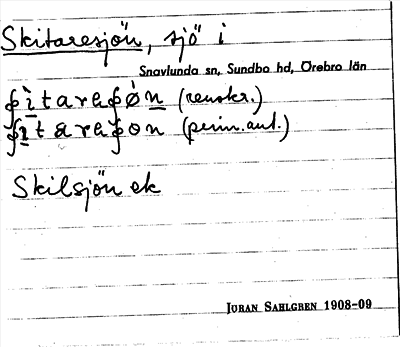 Skitaresjön, sjö i
Snavlunda sn, Sundbo hd, Örebro län
(renskr.)
(prim.ant.)
Skilsjön ek
JÖRAN SAHLGREN 1908-09